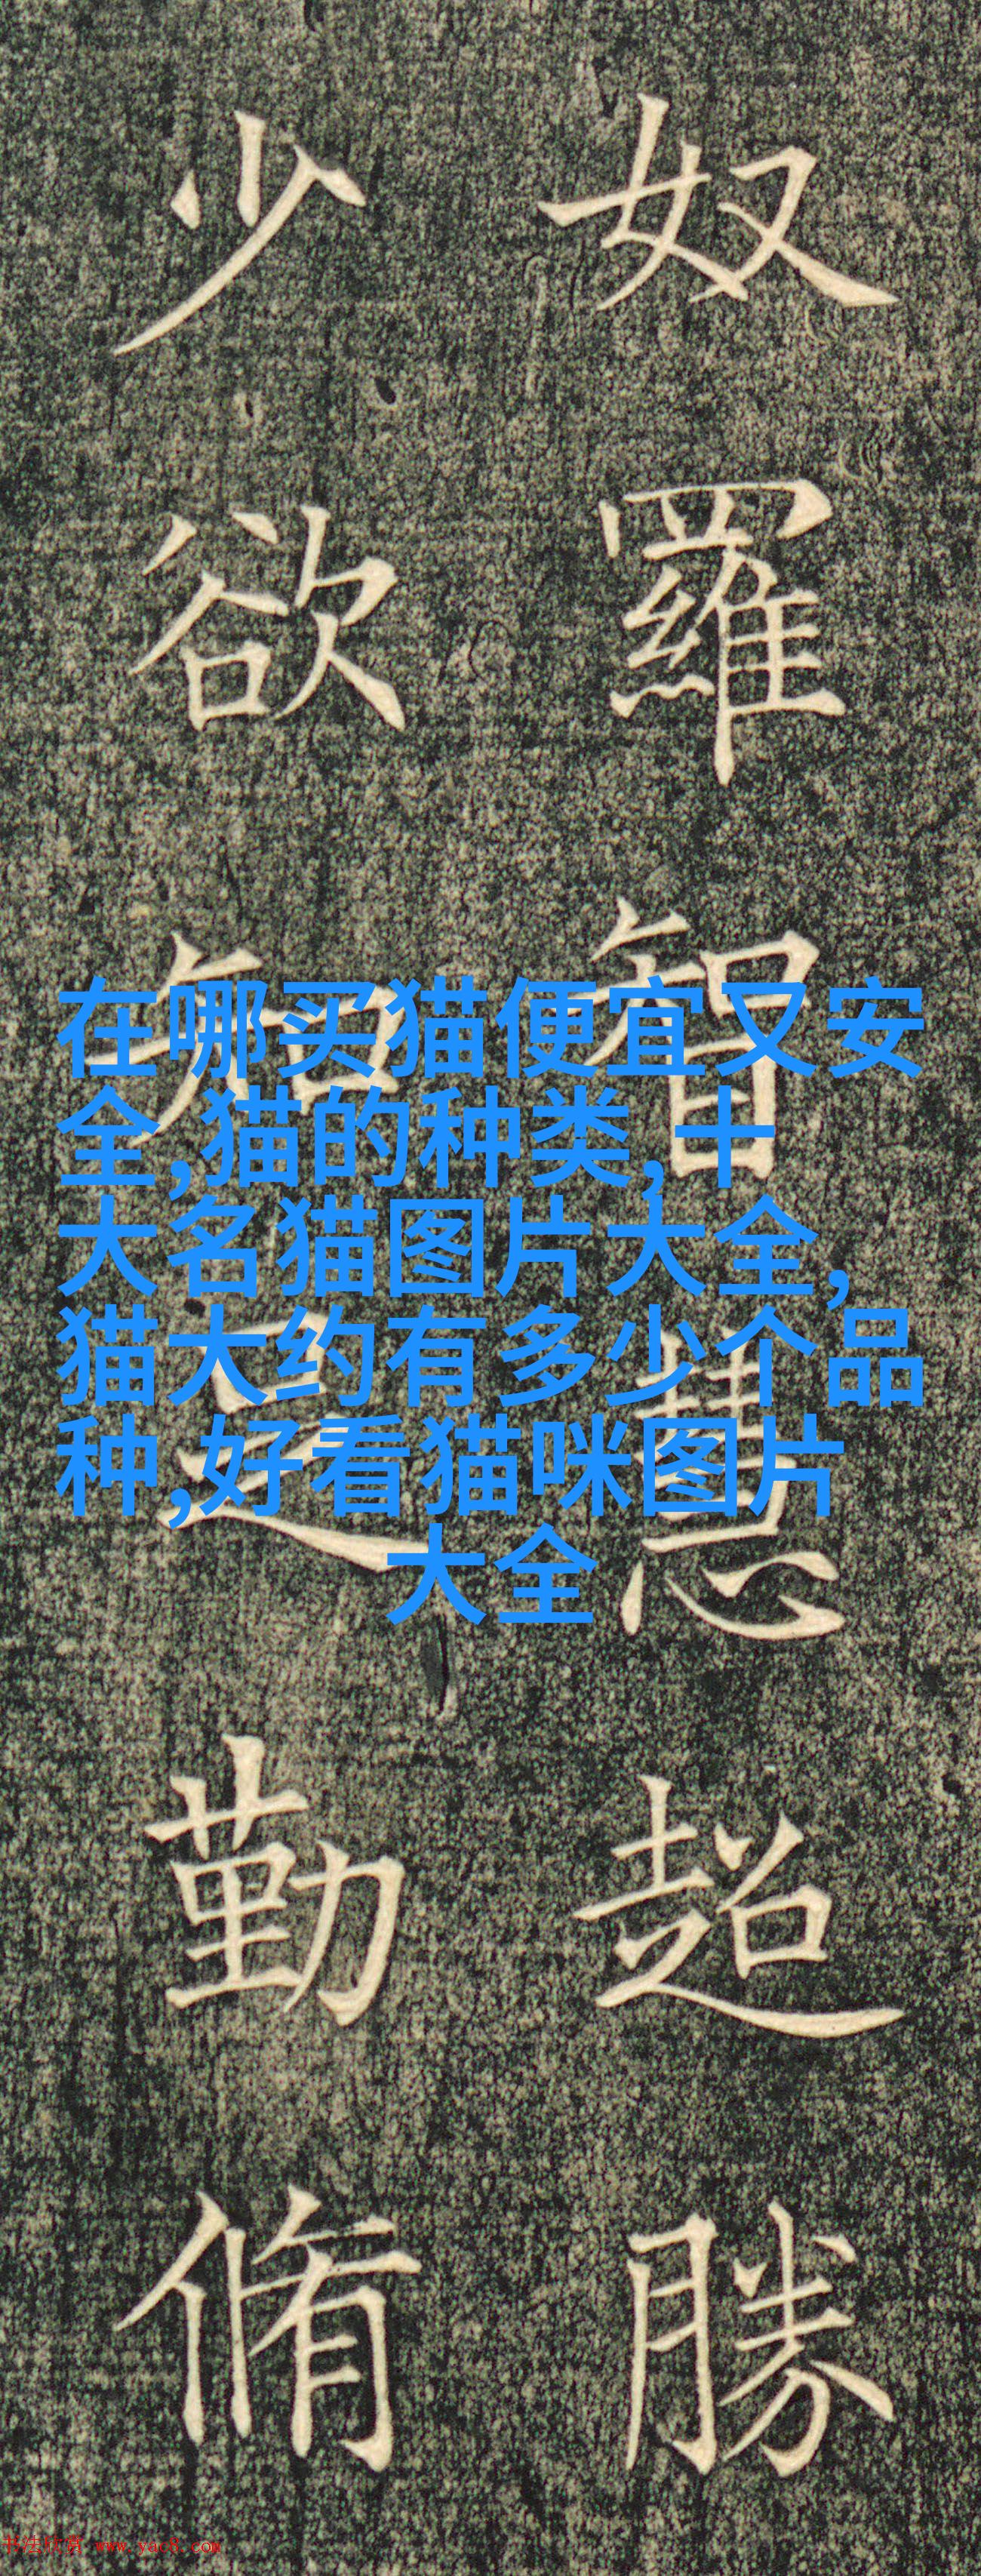 奴羅智慧超勝
少欲知足勤脩
在哪买猫便宜又安
全,猫的种类,十
大名猫图片大全,
猫大约有多少个品
种,好看猫咪图片
大全
www.yac8.com